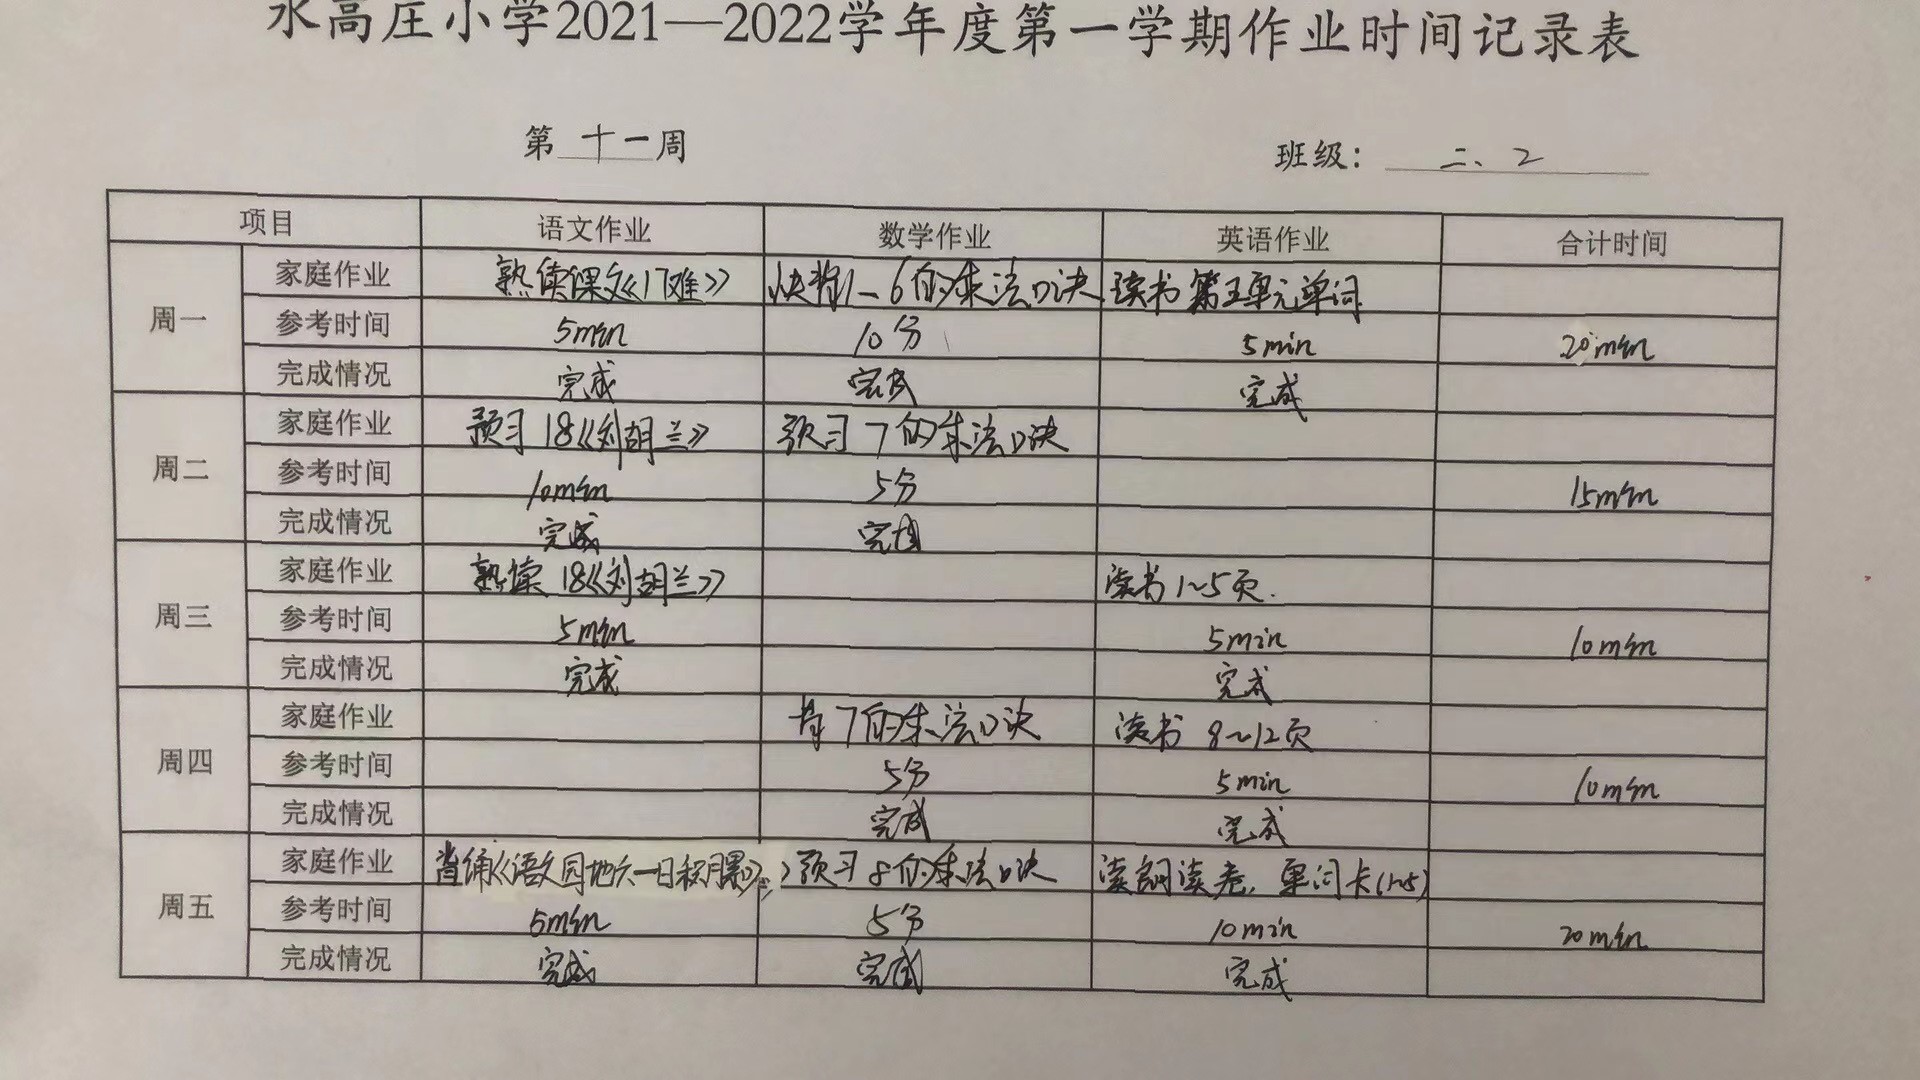 水高庄小学2021—2022学年度第一学期作业时间记录表
第 十一 周 班级： 二、2
项目 语文作业 数学作业 英语作业 合计时间
周一
家庭作业 熟读课文《17难》 快背1-6的乘法口诀 读书 第五单元单词
参考时间 5min 10分 5min 20min
完成情况 完成 完成 完成
周二
家庭作业 预习 18《刘胡兰》 预习 7的乘法口诀
参考时间 10min 5分 15min
完成情况 完成 完成
周三
家庭作业 熟读 18《刘胡兰》 读书1~5页.
参考时间 5min 5min 10min
完成情况 完成 完成
周四
家庭作业 背7的乘法口诀 读书 8~12页
参考时间 5分 5min 10min
完成情况 完成 完成
周五
家庭作业 背诵《语文园地六一日积月累》 预习 8的乘法口诀 单词卡(1~5)
参考时间 5min 5分 10min 20min
完成情况 完成 完成 完成